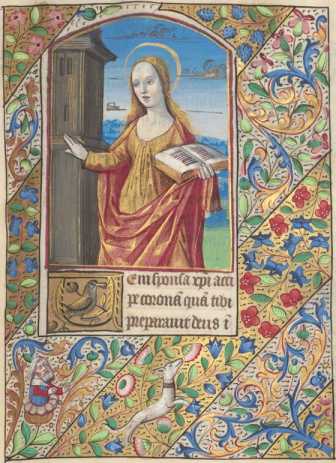 Veni sponsa xp̄i acci
pe coronā quā tibi
preparauit deus ī